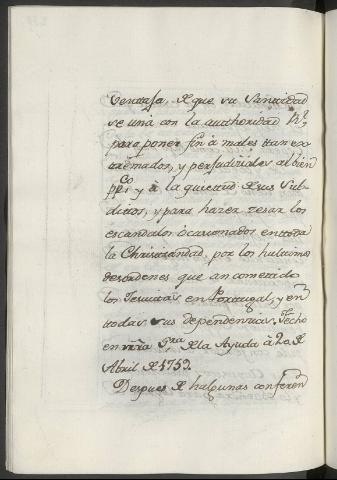 Ventaja, de que su Santidad
se una con la authoridad Rl,
para poner fin â males ttan ex
ttremados, y perjudiciales al bien
ppco, y â la quiettud de sus Sub-
dittos, y para hazer zesar los
escandalos ôcasionados en ttoda
la Christtiandad, por los hulttimos
desordenes que an comettido
los Jesuittas en Porttugal, y en
ttodas sus dependencias. Fecho
en nrra Sra de la Ayuda â 20 de
Abril de 1759.
Despues de halgunas conferen